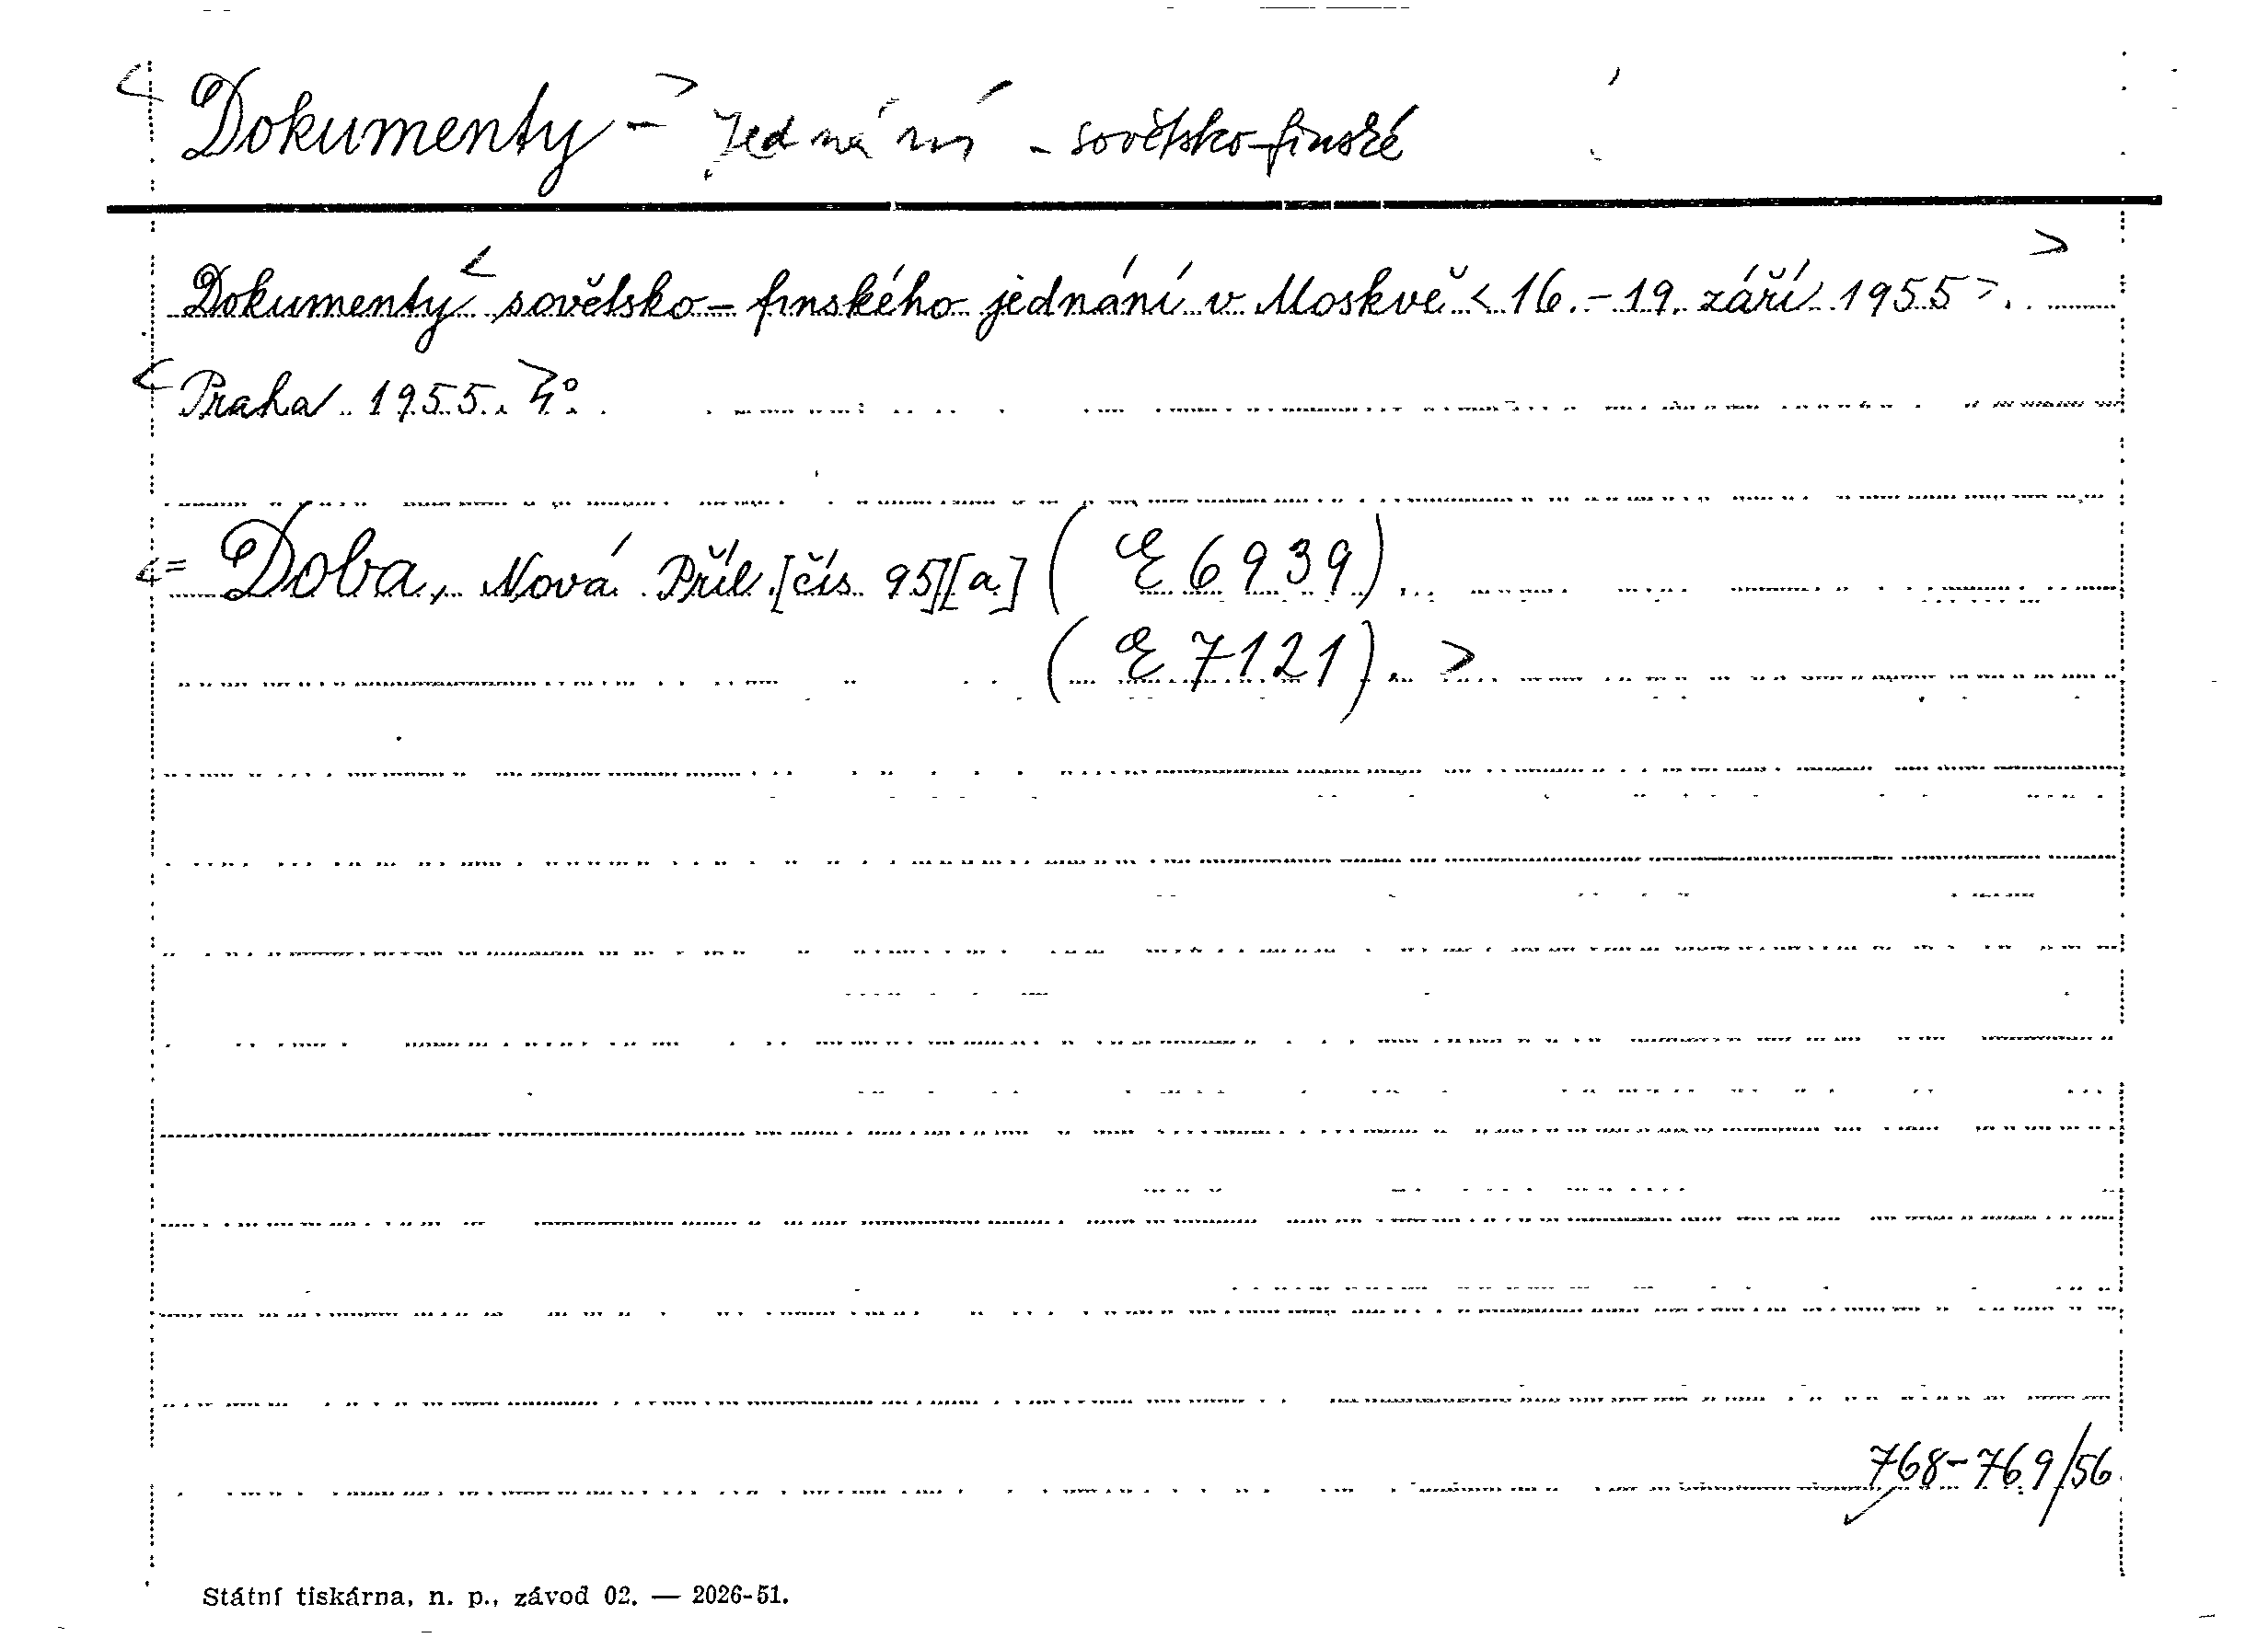 < Dokumenty - > Jednání - sovětsko-finské
Dokumenty < sovětsko-finského jednání v Moskvě < 16.-19. září 1955 >. >
< Praha 1955. > 4°.
<= Doba, Nová. Příl. [čís. 95][a] (E 6939).
(E 7121). >
768-769/56
Státní tiskárna, n. p., závod 02. — 2026-51.